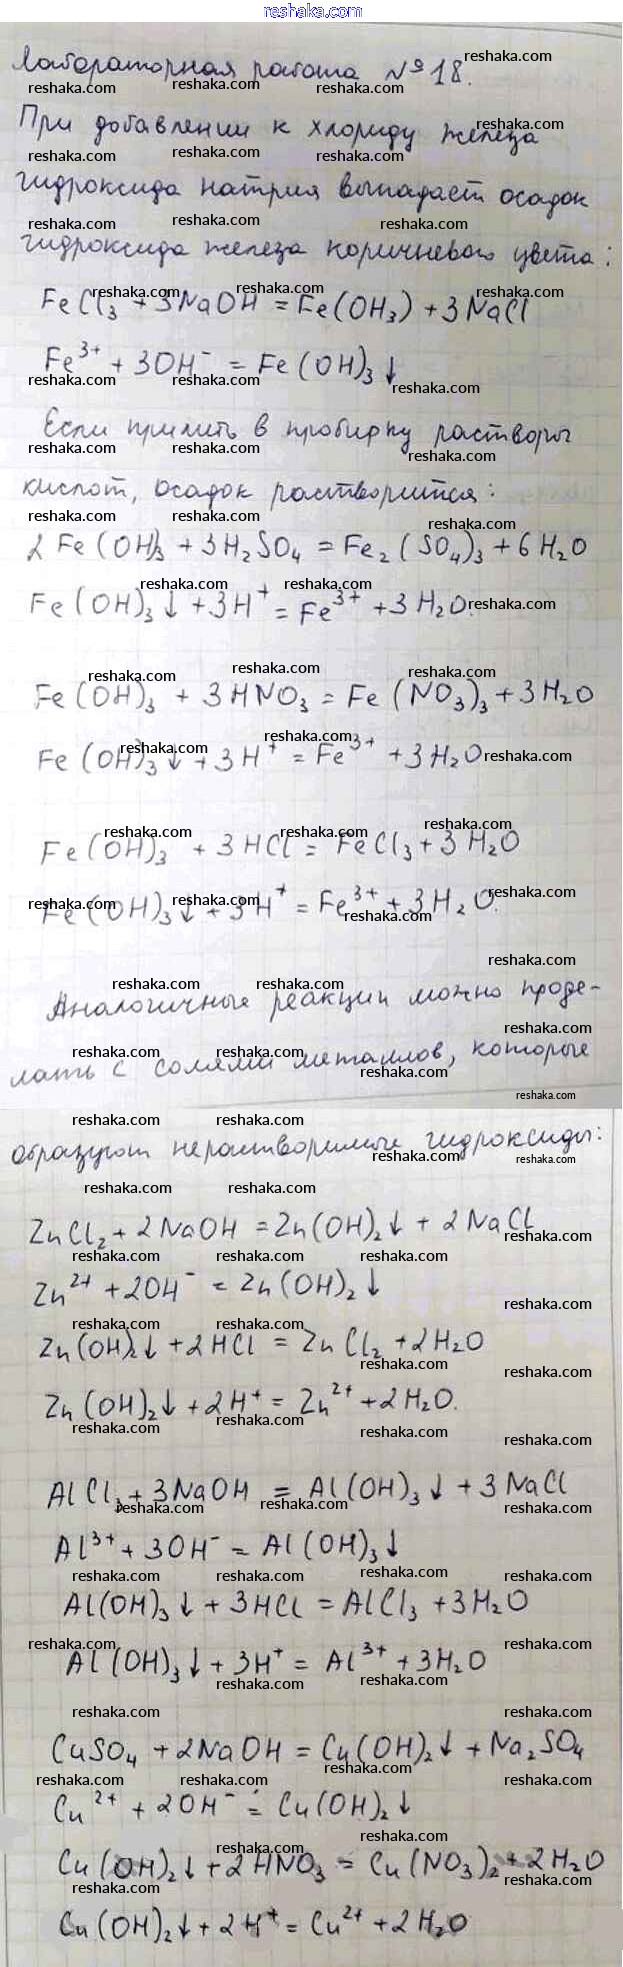 reshaka.com
Лабораторная работа №18.
При добавлении к хлориду железа
гидроксида натрия выпадает осадок
гидроксида железа коричневого цвета:
FeCl₃ + 3NaOH = Fe(OH₃) + 3NaCl
Fe³⁺ + 3OH⁻ = Fe(OH)₃↓
Если прилить в пробирку растворы
кислот, осадок растворится:
2Fe(OH)₃ + 3H₂SO₄ = Fe₂(SO₄)₃ + 6H₂O
Fe(OH)₃↓ + 3H⁺ = Fe³⁺ + 3H₂O.
Fe(OH)₃ + 3HNO₃ = Fe(NO₃)₃ + 3H₂O
Fe(OH)₃↓ + 3H⁺ = Fe³⁺ + 3H₂O
Fe(OH)₃ + 3HCl = FeCl₃ + 3H₂O
Fe(OH)₃↓ + 3H⁺ = Fe³⁺ + 3H₂O.
Аналогичные реакции можно проде-
лать с солями металлов, которые
образуют нерастворимые гидроксиды:
ZnCl₂ + 2NaOH = Zn(OH)₂↓ + 2NaCl
Zn²⁺ + 2OH⁻ = Zn(OH)₂↓
Zn(OH)₂↓ + 2HCl = ZnCl₂ + 2H₂O
Zn(OH)₂↓ + 2H⁺ = Zn²⁺ + 2H₂O.
AlCl₃ + 3NaOH = Al(OH)₃↓ + 3NaCl
Al³⁺ + 3OH⁻ = Al(OH)₃↓
Al(OH)₃↓ + 3HCl = AlCl₃ + 3H₂O
Al(OH)₃↓ + 3H⁺ = Al³⁺ + 3H₂O
CuSO₄ + 2NaOH = Cu(OH)₂↓ + Na₂SO₄
Cu²⁺ + 2OH⁻ = Cu(OH)₂↓
Cu(OH)₂↓ + 2HNO₃ = Cu(NO₃)₂ + 2H₂O
Cu(OH)₂↓ + 2H⁺ = Cu²⁺ + 2H₂O